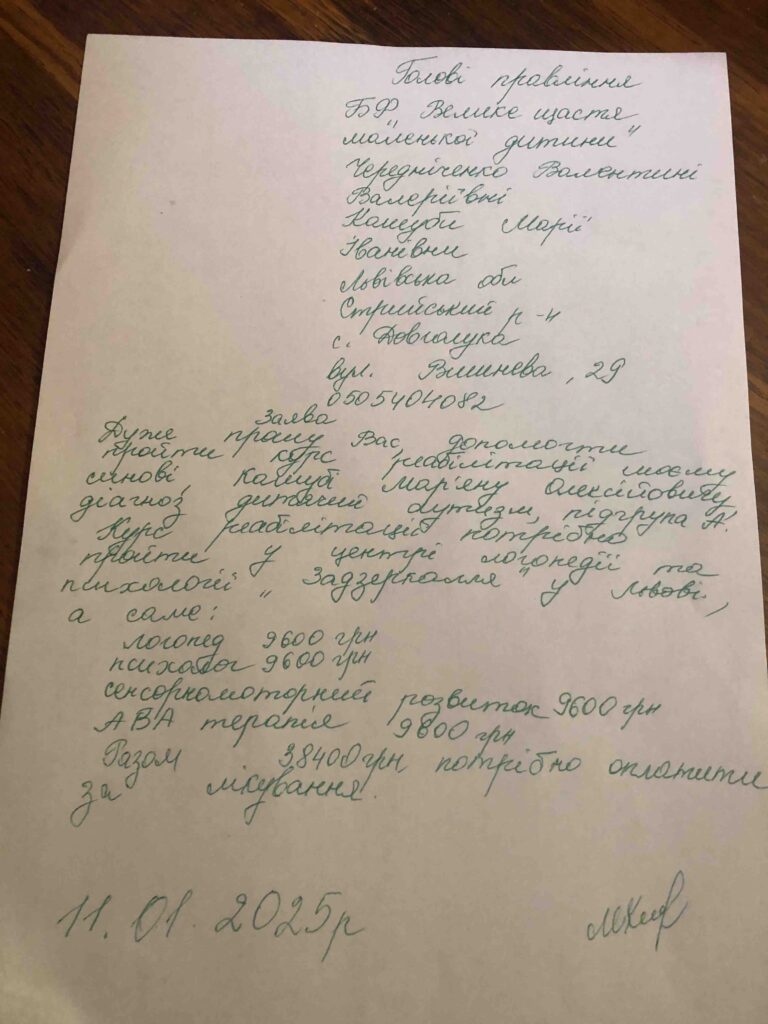 Голові правління
БФ „Велике щастя
маленької дитини"
Чередніченко Валентині
Валеріївні
Кашуби Марії
Іванівни
Львівська обл
Стрийський р-н
с. Довголука
вул. Вишнева, 29
0505404082
Заява
Дуже прошу Вас, допомогти
пройти курс реабілітації моєму
синові, Кашубі Мар'яну Олексійовичу,
діагноз дитячий аутизм, підгрупа А.
Курс реабілітації потрібно
пройти у центрі логопедії та
психології „Задзеркалля" у Львові,
а саме:
логопед 9600 грн
психолог 9600 грн
сенсорномоторний розвиток 9600 грн
АВА терапія 9600 грн
Разом 38400 грн потрібно оплатити
за лікування.
11.01.2025р